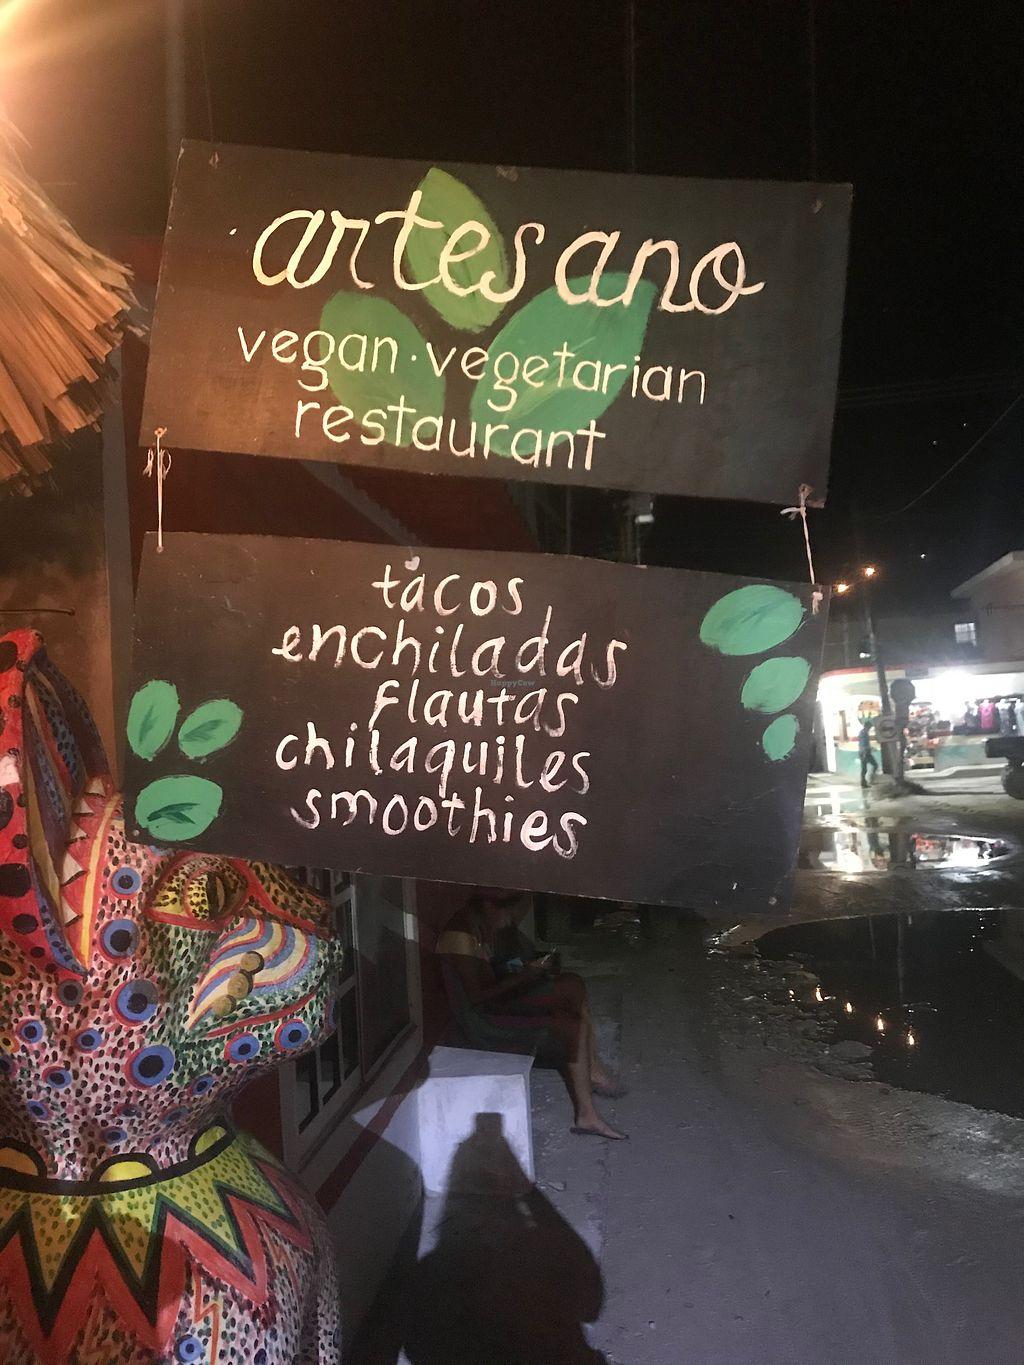 artesano
vegan · vegetarian
restaurant
tacos
enchiladas
flautas
chilaquiles
smoothies
HappyCow